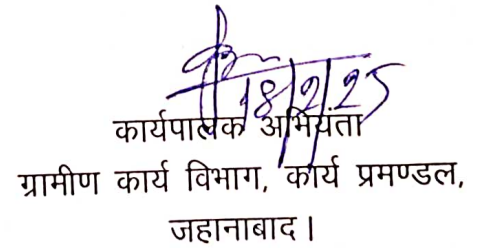 18/2/25
कार्यपालक अभियंता
ग्रामीण कार्य विभाग, कार्य प्रमण्डल,
जहानाबाद।